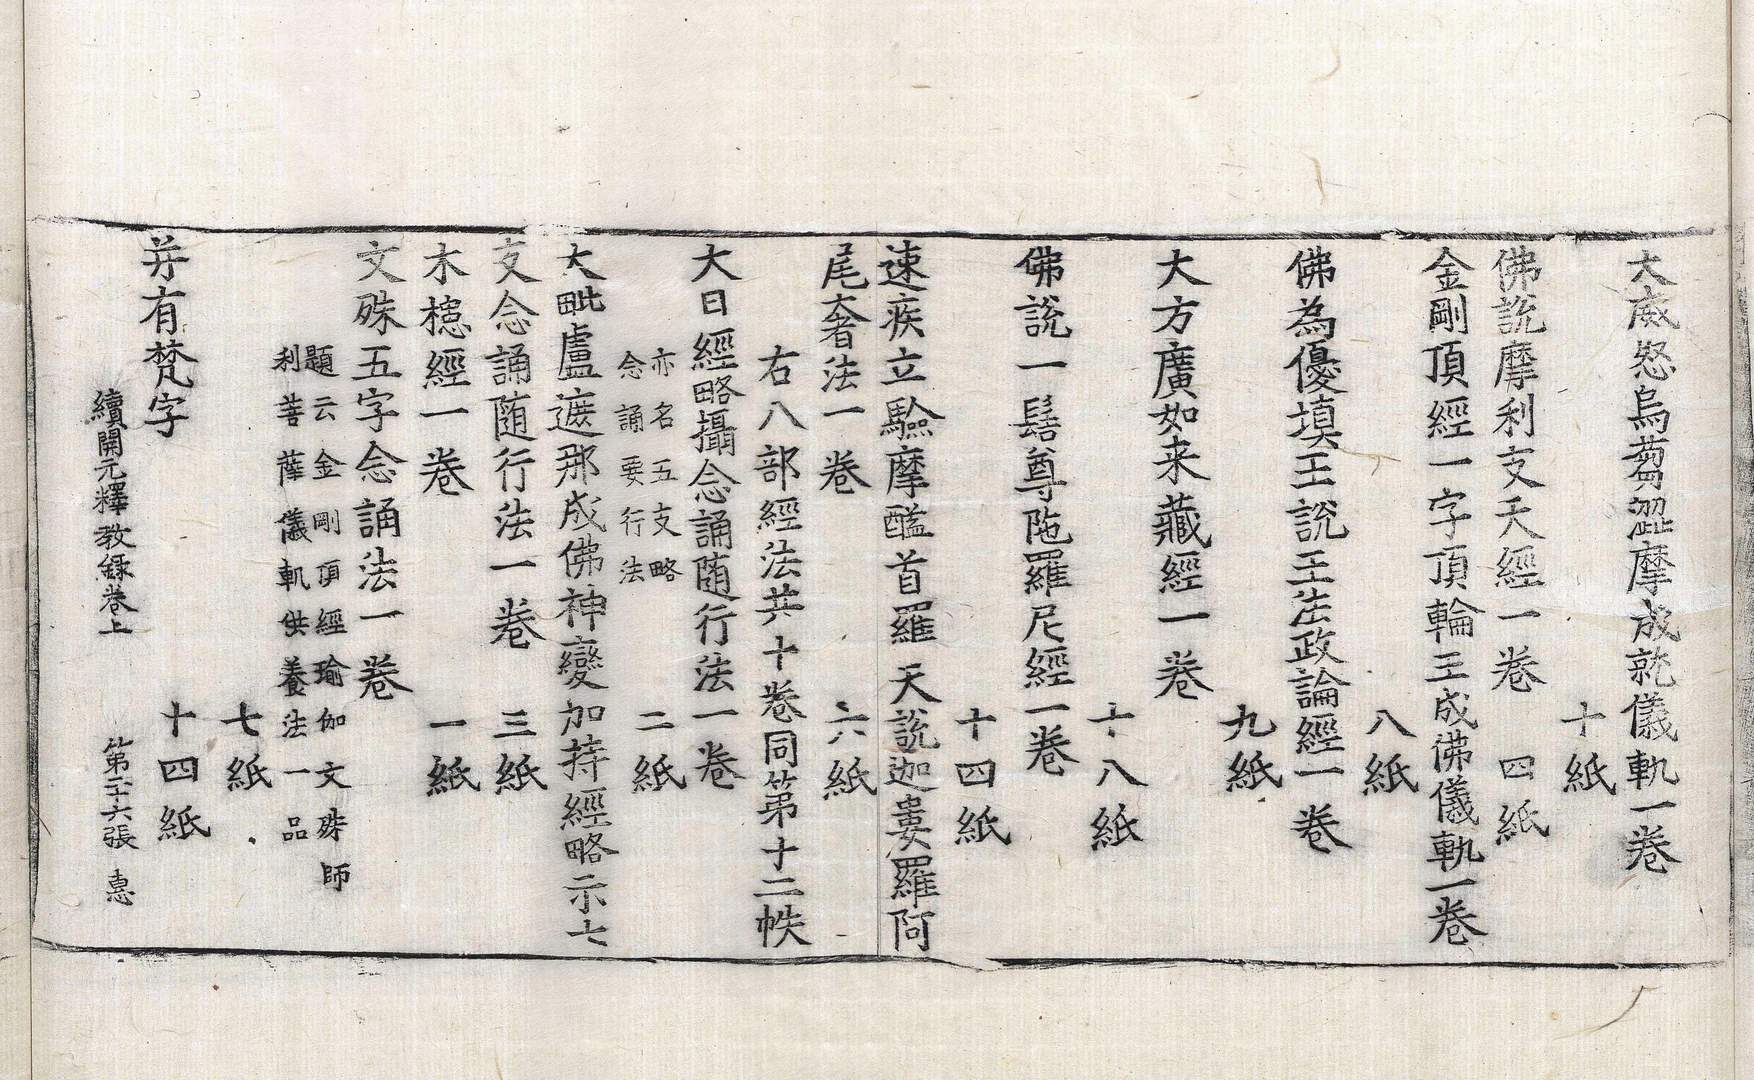 大威怒烏芻澀摩成就儀軌一卷
十紙
佛說摩利支天經一卷　四紙
金剛頂經一字頂輪王成佛儀軌一卷
八紙
佛為優塡王說王法政論經一卷
九紙
大方廣如来藏經一卷
十八紙
佛說一髻尊陁羅尼經一卷
十四紙
速疾立驗摩醯首羅天說迦婁羅阿
尾奢法一卷　六紙
右八部經法共十卷同第十二帙
大日經略攝念誦随行法一卷
亦名五支略
念誦要行法
二紙
大毗盧遮那成佛神變加持經略示七
支念誦随行法一卷　三紙
木槵經一卷　一紙
文殊五字念誦法一卷
題云金剛頂經瑜伽文殊師
利菩薩儀軌供養法一品
七紙
并有梵字　十四紙
續開元釋教錄卷上　第二十六張　惪